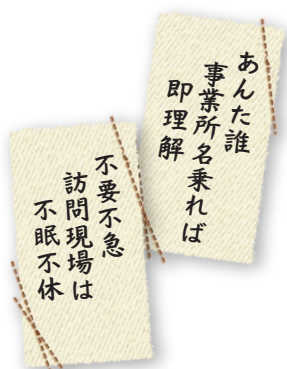 あんた誰
事業所名乗れば
即理解
不要不急
訪問現場は
不眠不休